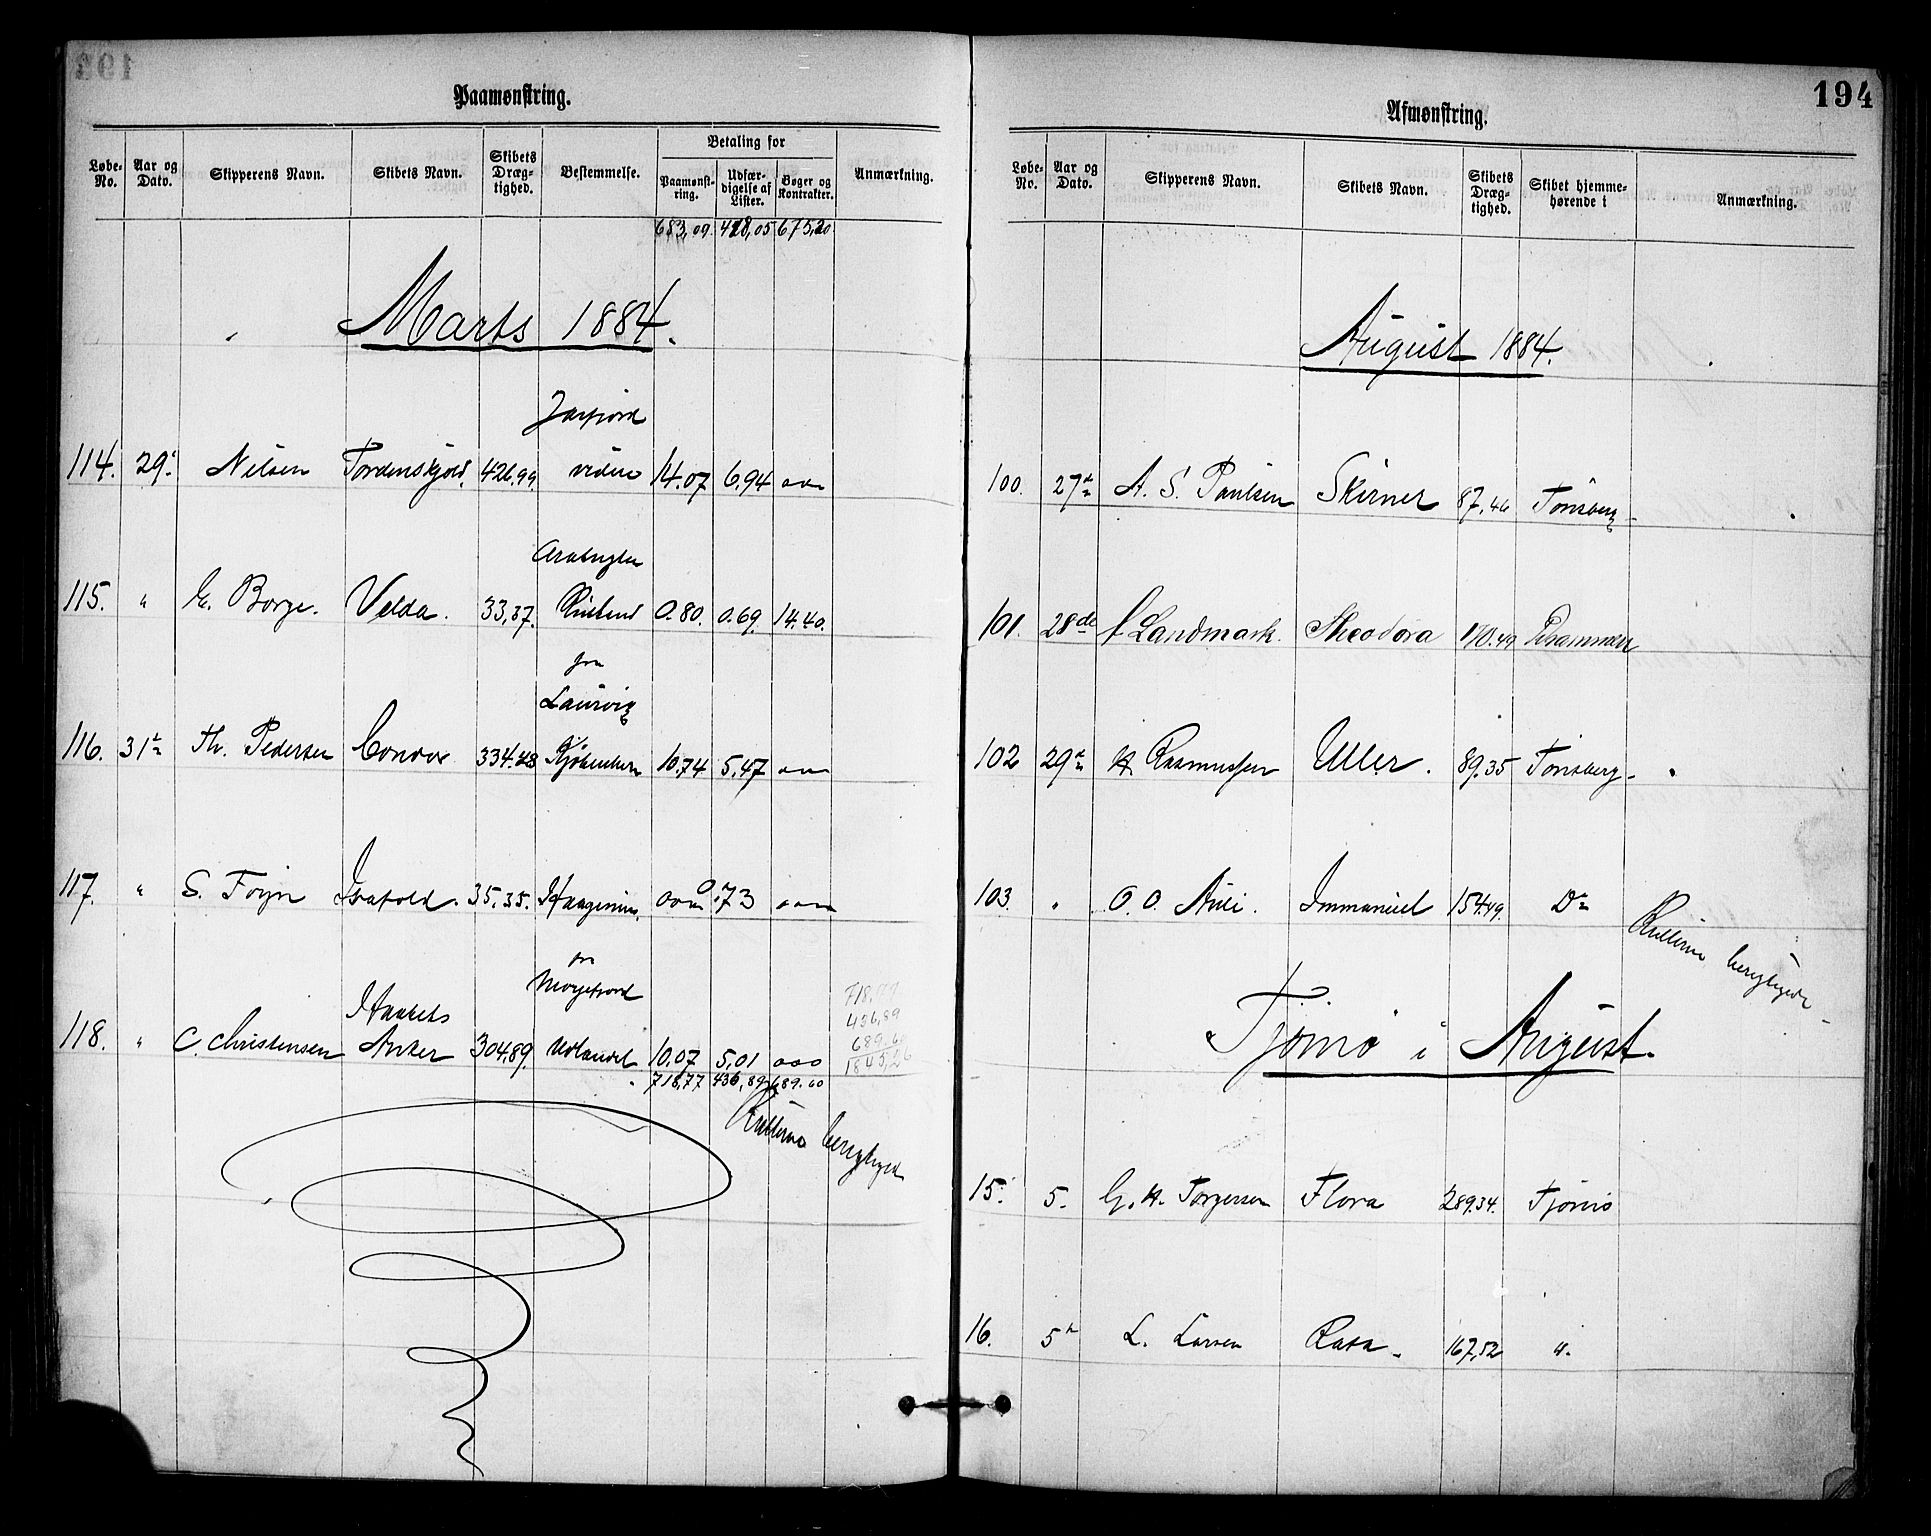 Paamønstring.
Løbe-No.	Aar og Dato.	Skipperens Navn.	Skibets Navn.	Skibets Dræg-tighed.	Bestemmelse.	Betaling for	Anmærkning.
Paamønst-ring.	Udfær-digelse af Lister.	Bøger og Kontrakter.
683,09	428,05	675,20
Marts 1884.
114.	29	Nilsen	Tordenskjold	426.99	14.07	6.94
115.	"	E. Borge.	Velda.	33,37.	0.80.	0.69.	14.40.
fra
Laurvig
116.	31	Th. Pedersen	Condor	334.28	Kjøbenhavn	10,74	5,47
117.	"	S. Foyn	Isafold.	35.35.	0.73
fra
118.	"	C. Christensen	Haabets Anker	304.89.	Udlandet	10.07	5,01
718,77	436,89	689.60
718,77
436,89
689.60
1845,26
Rullerne
194
Afmønstring.
Løbe-No.	Aar og Dato.	Skipperens Navn.	Skibets Navn.	Skibets Dræg-tighed.	Skibet hjemme-hørende i	Anmærkning.
August 1884.
100.	27	A. S. Paulsen	Skirner	87,46	Tønsberg
101.	28de	Landmark.	Theodora	170.49	Drammen
102	29	Rasmussen	Uller.	89.35	Tønsberg
103.	"	O. O. Auli.	Immanuel	154.49.	Do
Rullerne
Tjømø i August.
15.	5.	G. H. Torgersen	Flora	289.34.	Tjømø
16.	5	L. Larsen	Rota	167,52	"